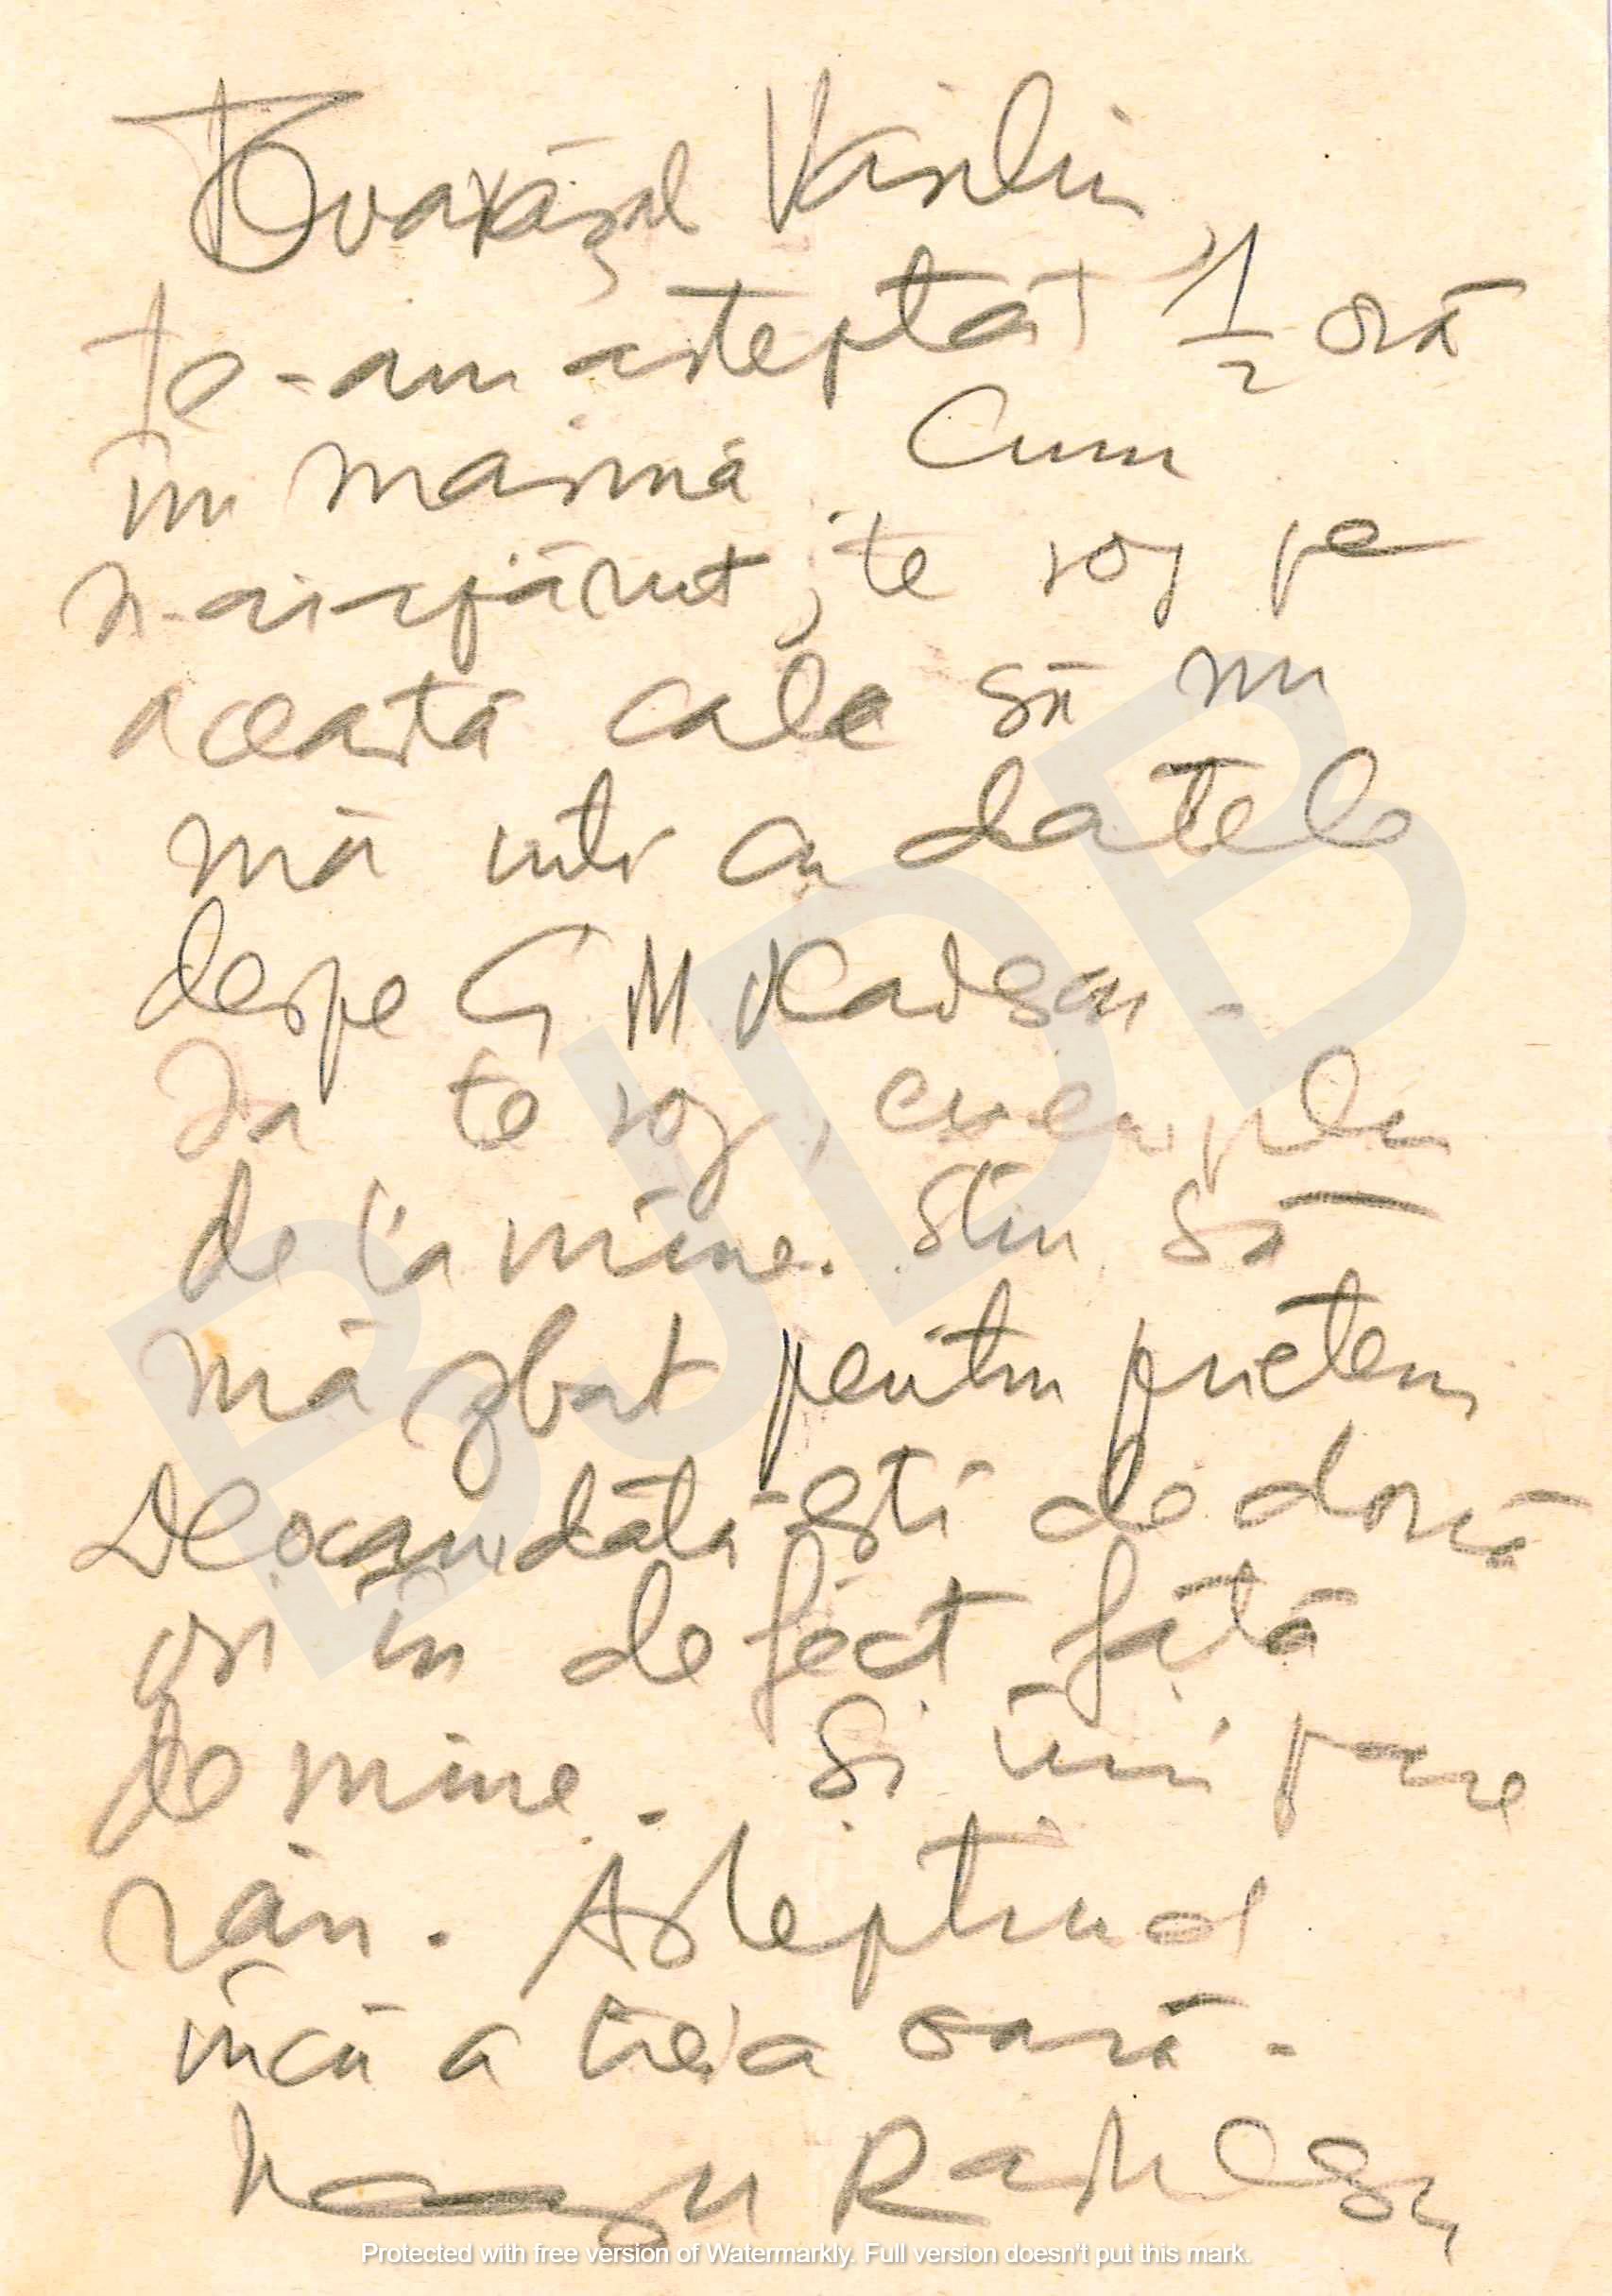 Tovarășul Vasiliu
te-am asteptat 1/2 oră
în mașină. Cum
n-ai apărut, te rog pe
această cale să nu
mă uiti cu datele
despre G M Vlădescu.
Ia te rog, exemplu
de la mine. Stiu să
mă zbat pentru prieteni
Deocamdată ești de două
ori în defect față
de mine. Si îmi pare
rău. Asteptînd
încă a treia oară.
Neagu Rădulescu
BJDB
Protected with free version of Watermarkly. Full version doesn't put this mark.